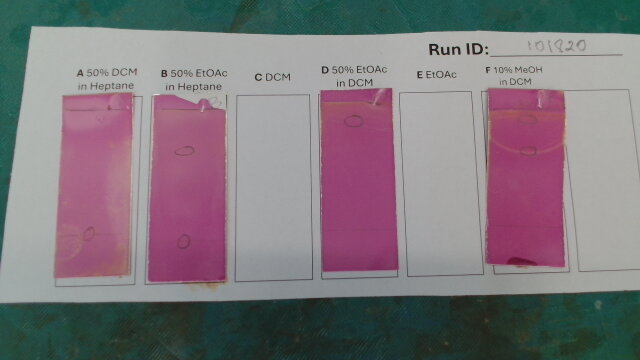 Run ID: 101820
A 50% DCM in Heptane
B 50% EtOAc in Heptane
C DCM
D 50% EtOAc in DCM
E EtOAc
F 10% MeOH in DCM